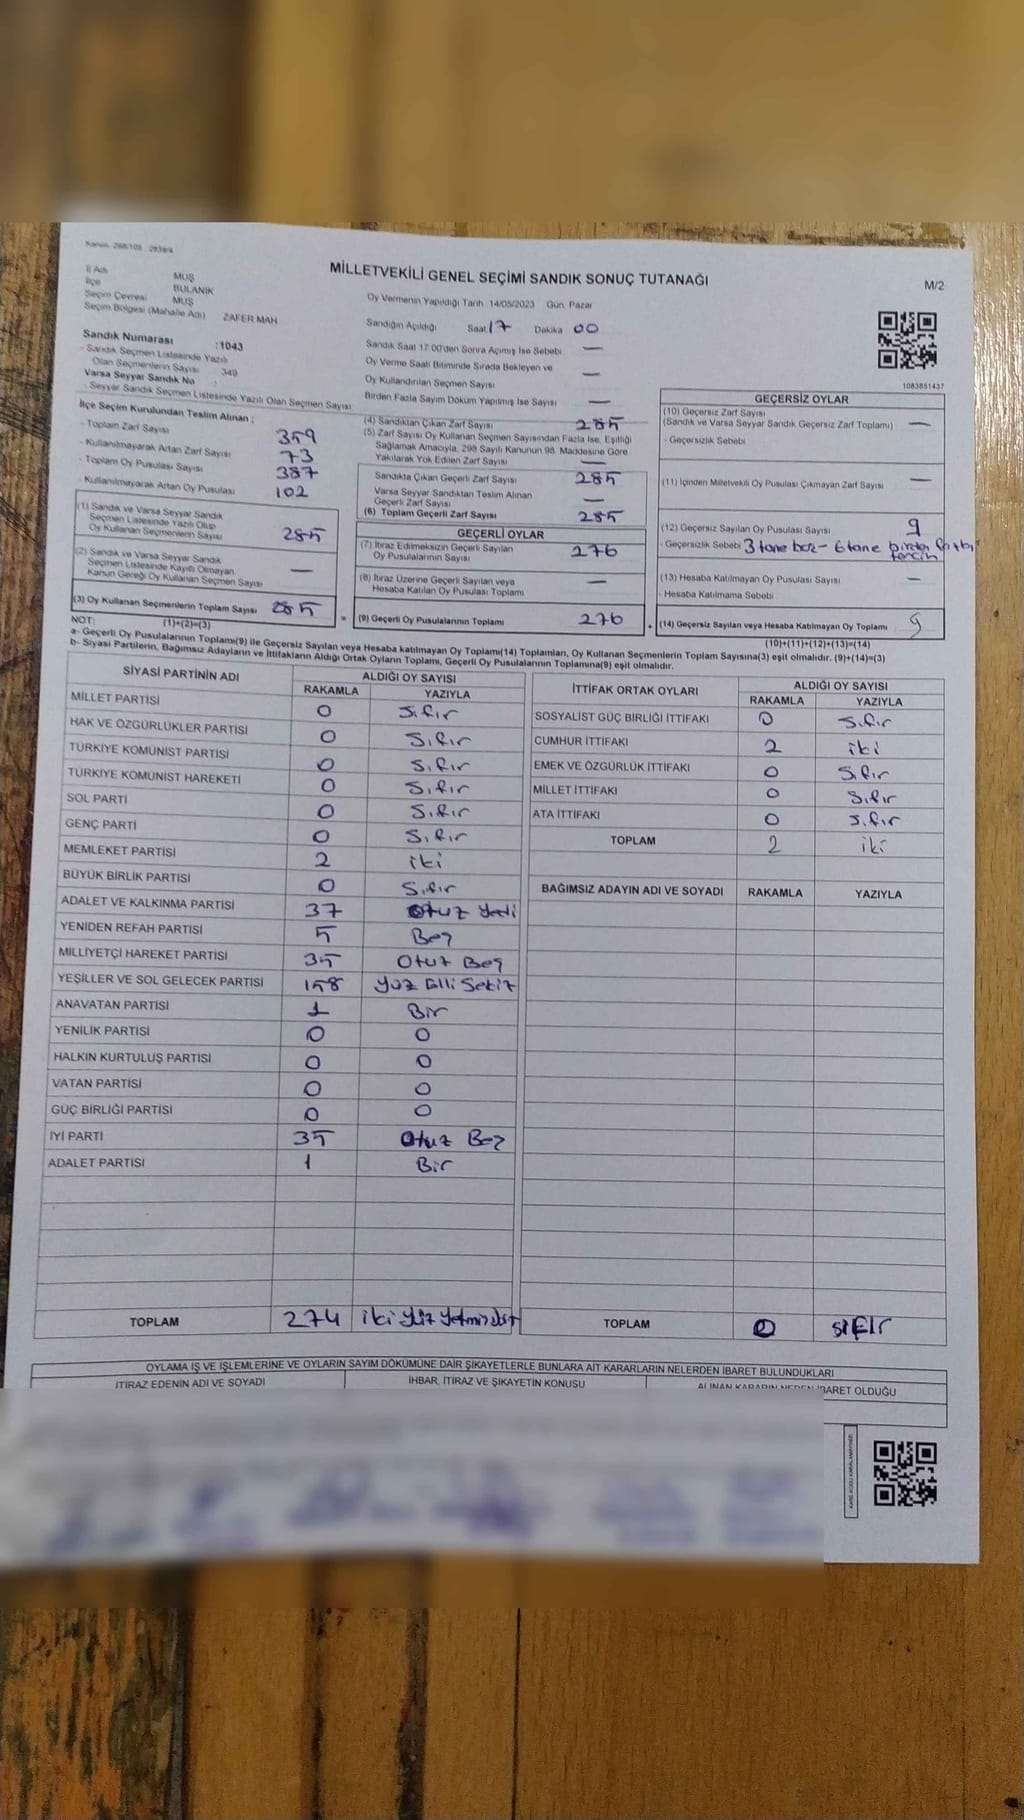 Kanun: 298/105 , 2839/4
MİLLETVEKİLİ GENEL SEÇİMİ SANDIK SONUÇ TUTANAĞI
M/2
İl Adı MUŞ
İlçe BULANIK
Seçim Çevresi MUŞ
Seçim Bölgesi (Mahalle Adı) ZAFER MAH
Sandık Numarası :1043
- Sandık Seçmen Listesinde Yazılı
Olan Seçmenlerin Sayısı 349
Varsa Seyyar Sandık No :
- Seyyar Sandık Seçmen Listesinde Yazılı Olan Seçmen Sayısı
Oy Vermenin Yapıldığı Tarih: 14/05/2023 Gün: Pazar
Sandığın Açıldığı Saat 17 Dakika 00
Sandık Saat 17:00'den Sonra Açılmış İse Sebebi —
Oy Verme Saati Bitiminde Sırada Bekleyen ve
Oy Kullandırılan Seçmen Sayısı —
Birden Fazla Sayım Döküm Yapılmış İse Sayısı —
1083851437
İlçe Seçim Kurulundan Teslim Alınan ;
- Toplam Zarf Sayısı 359
- Kullanılmayarak Artan Zarf Sayısı 73
- Toplam Oy Pusulası Sayısı 387
- Kullanılmayarak Artan Oy Pusulası 102
(1) Sandık ve Varsa Seyyar Sandık
Seçmen Listesinde Yazılı Olup
Oy Kullanan Seçmenlerin Sayısı 285
(2) Sandık ve Varsa Seyyar Sandık
Seçmen Listesinde Kayıtlı Olmayan
Kanun Gereği Oy Kullanan Seçmen Sayısı —
(3) Oy Kullanan Seçmenlerin Toplam Sayısı 285 =
(4) Sandıktan Çıkan Zarf Sayısı 285
(5) Zarf Sayısı Oy Kullanan Seçmen Sayısından Fazla İse, Eşitliği
Sağlamak Amacıyla, 298 Sayılı Kanunun 98. Maddesine Göre
Yakılarak Yok Edilen Zarf Sayısı —
Sandıkta Çıkan Geçerli Zarf Sayısı 285
Varsa Seyyar Sandıktan Teslim Alınan
Geçerli Zarf Sayısı —
(6) Toplam Geçerli Zarf Sayısı 285
GEÇERLİ OYLAR
(7) İtiraz Edilmeksizin Geçerli Sayılan
Oy Pusulalarının Sayısı 276
(8) İtiraz Üzerine Geçerli Sayılan veya
Hesaba Katılan Oy Pusulası Toplamı —
(9) Geçerli Oy Pusulalarının Toplamı 276 +
GEÇERSİZ OYLAR
(10) Geçersiz Zarf Sayısı
(Sandık ve Varsa Seyyar Sandık Geçersiz Zarf Toplamı) —
- Geçersizlik Sebebi
(11) İçinden Milletvekili Oy Pusulası Çıkmayan Zarf Sayısı —
(12) Geçersiz Sayılan Oy Pusulası Sayısı 9
- Geçersizlik Sebebi 3 tane boş - 6 tane birden fazla
tercih
(13) Hesaba Katılmayan Oy Pusulası Sayısı —
- Hesaba Katılmama Sebebi
(14) Geçersiz Sayılan veya Hesaba Katılmayan Oy Toplamı 9
NOT: (1)+(2)=(3)
(10)+(11)+(12)+(13)=(14)
a- Geçerli Oy Pusulalarının Toplamı(9) ile Geçersiz Sayılan veya Hesaba katılmayan Oy Toplamı(14) Toplamları, Oy Kullanan Seçmenlerin Toplam Sayısına(3) eşit olmalıdır. (9)+(14)=(3)
b- Siyasi Partilerin, Bağımsız Adayların ve İttifakların Aldığı Ortak Oyların Toplamı, Geçerli Oy Pusulalarının Toplamına(9) eşit olmalıdır.
SİYASİ PARTİNİN ADI ALDIĞI OY SAYISI
RAKAMLA YAZIYLA
MİLLET PARTİSİ 0 Sıfır
HAK VE ÖZGÜRLÜKLER PARTİSİ 0 Sıfır
TÜRKİYE KOMÜNİST PARTİSİ 0 Sıfır
TÜRKİYE KOMÜNİST HAREKETİ 0 Sıfır
SOL PARTİ 0 Sıfır
GENÇ PARTİ 0 Sıfır
MEMLEKET PARTİSİ 2 iki
BÜYÜK BİRLİK PARTİSİ 0 Sıfır
ADALET VE KALKINMA PARTİSİ 37 Otuz Yedi
YENİDEN REFAH PARTİSİ 5 Beş
MİLLİYETÇİ HAREKET PARTİSİ 35 Otuz Beş
YEŞİLLER VE SOL GELECEK PARTİSİ 158 Yüz Elli Sekiz
ANAVATAN PARTİSİ 1 Bir
YENİLİK PARTİSİ 0 0
HALKIN KURTULUŞ PARTİSİ 0 0
VATAN PARTİSİ 0 0
GÜÇ BİRLİĞİ PARTİSİ 0 0
İYİ PARTİ 35 Otuz Beş
ADALET PARTİSİ 1 Bir
TOPLAM 274 iki Yüz Yetmiş dört
İTTİFAK ORTAK OYLARI ALDIĞI OY SAYISI
RAKAMLA YAZIYLA
SOSYALİST GÜÇ BİRLİĞİ İTTİFAKI 0 Sıfır
CUMHUR İTTİFAKI 2 iki
EMEK VE ÖZGÜRLÜK İTTİFAKI 0 Sıfır
MİLLET İTTİFAKI 0 Sıfır
ATA İTTİFAKI 0 Sıfır
TOPLAM 2 iki
BAĞIMSIZ ADAYIN ADI VE SOYADI RAKAMLA YAZIYLA
TOPLAM 0 SIFIr
OYLAMA İŞ VE İŞLEMLERİNE VE OYLARIN SAYIM DÖKÜMÜNE DAİR ŞİKAYETLERLE BUNLARA AİT KARARLARIN NELERDEN İBARET BULUNDUKLARI
İTİRAZ EDENİN ADI VE SOYADI İHBAR, İTİRAZ VE ŞİKAYETİN KONUSU ALINAN KARARIN NEDEN İBARET OLDUĞU